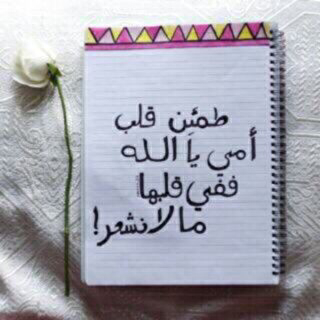 طمئن قلب
أمي يا الله
ففي قلبها
مالا نشعر!